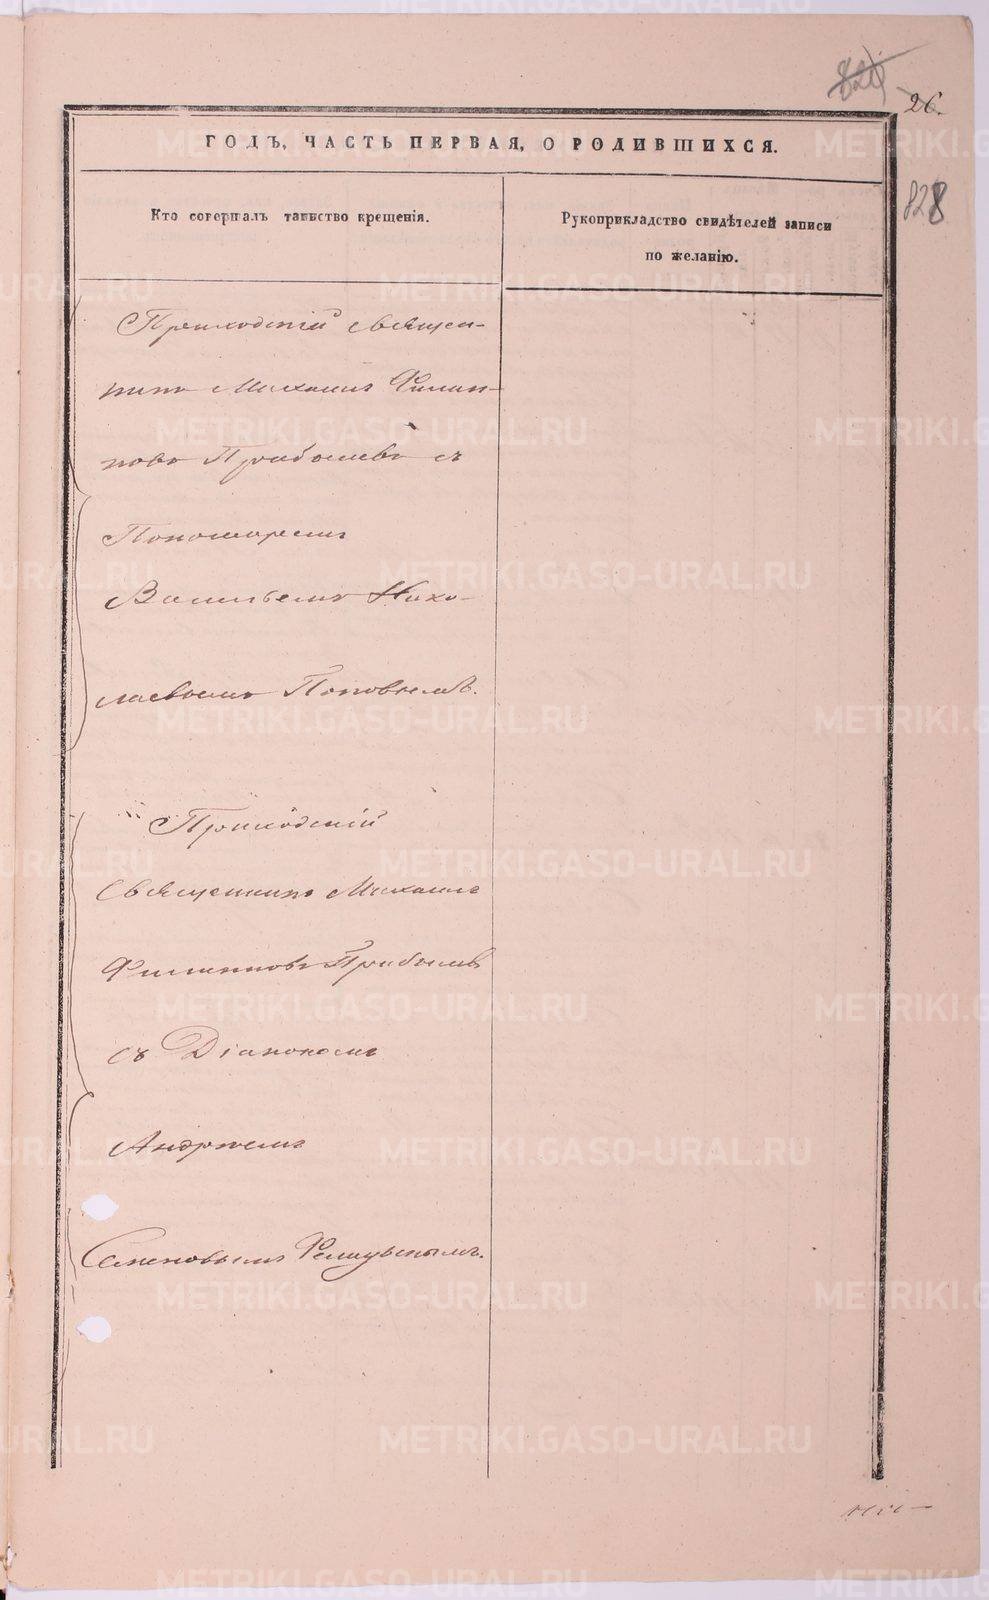 26.
828
ГОДЪ, ЧАСТЬ ПЕРВАЯ, О РОДИВШИХСЯ.
Кто совершалъ таинство крещенія.
Рукоприкладство свидѣтелей записи
по желанію.
Приходскій Священ-
никъ Михаилъ Филип-
повъ Прибылевъ съ
Пономаремъ
Васильемъ Нико-
лаевымъ Поповымъ.
Приходскій
Священникъ Михаилъ
Филипповъ Прибылевъ
съ Діакономъ
Андреемъ
Семеновымъ
METRIKI.GASO-URAL.RU